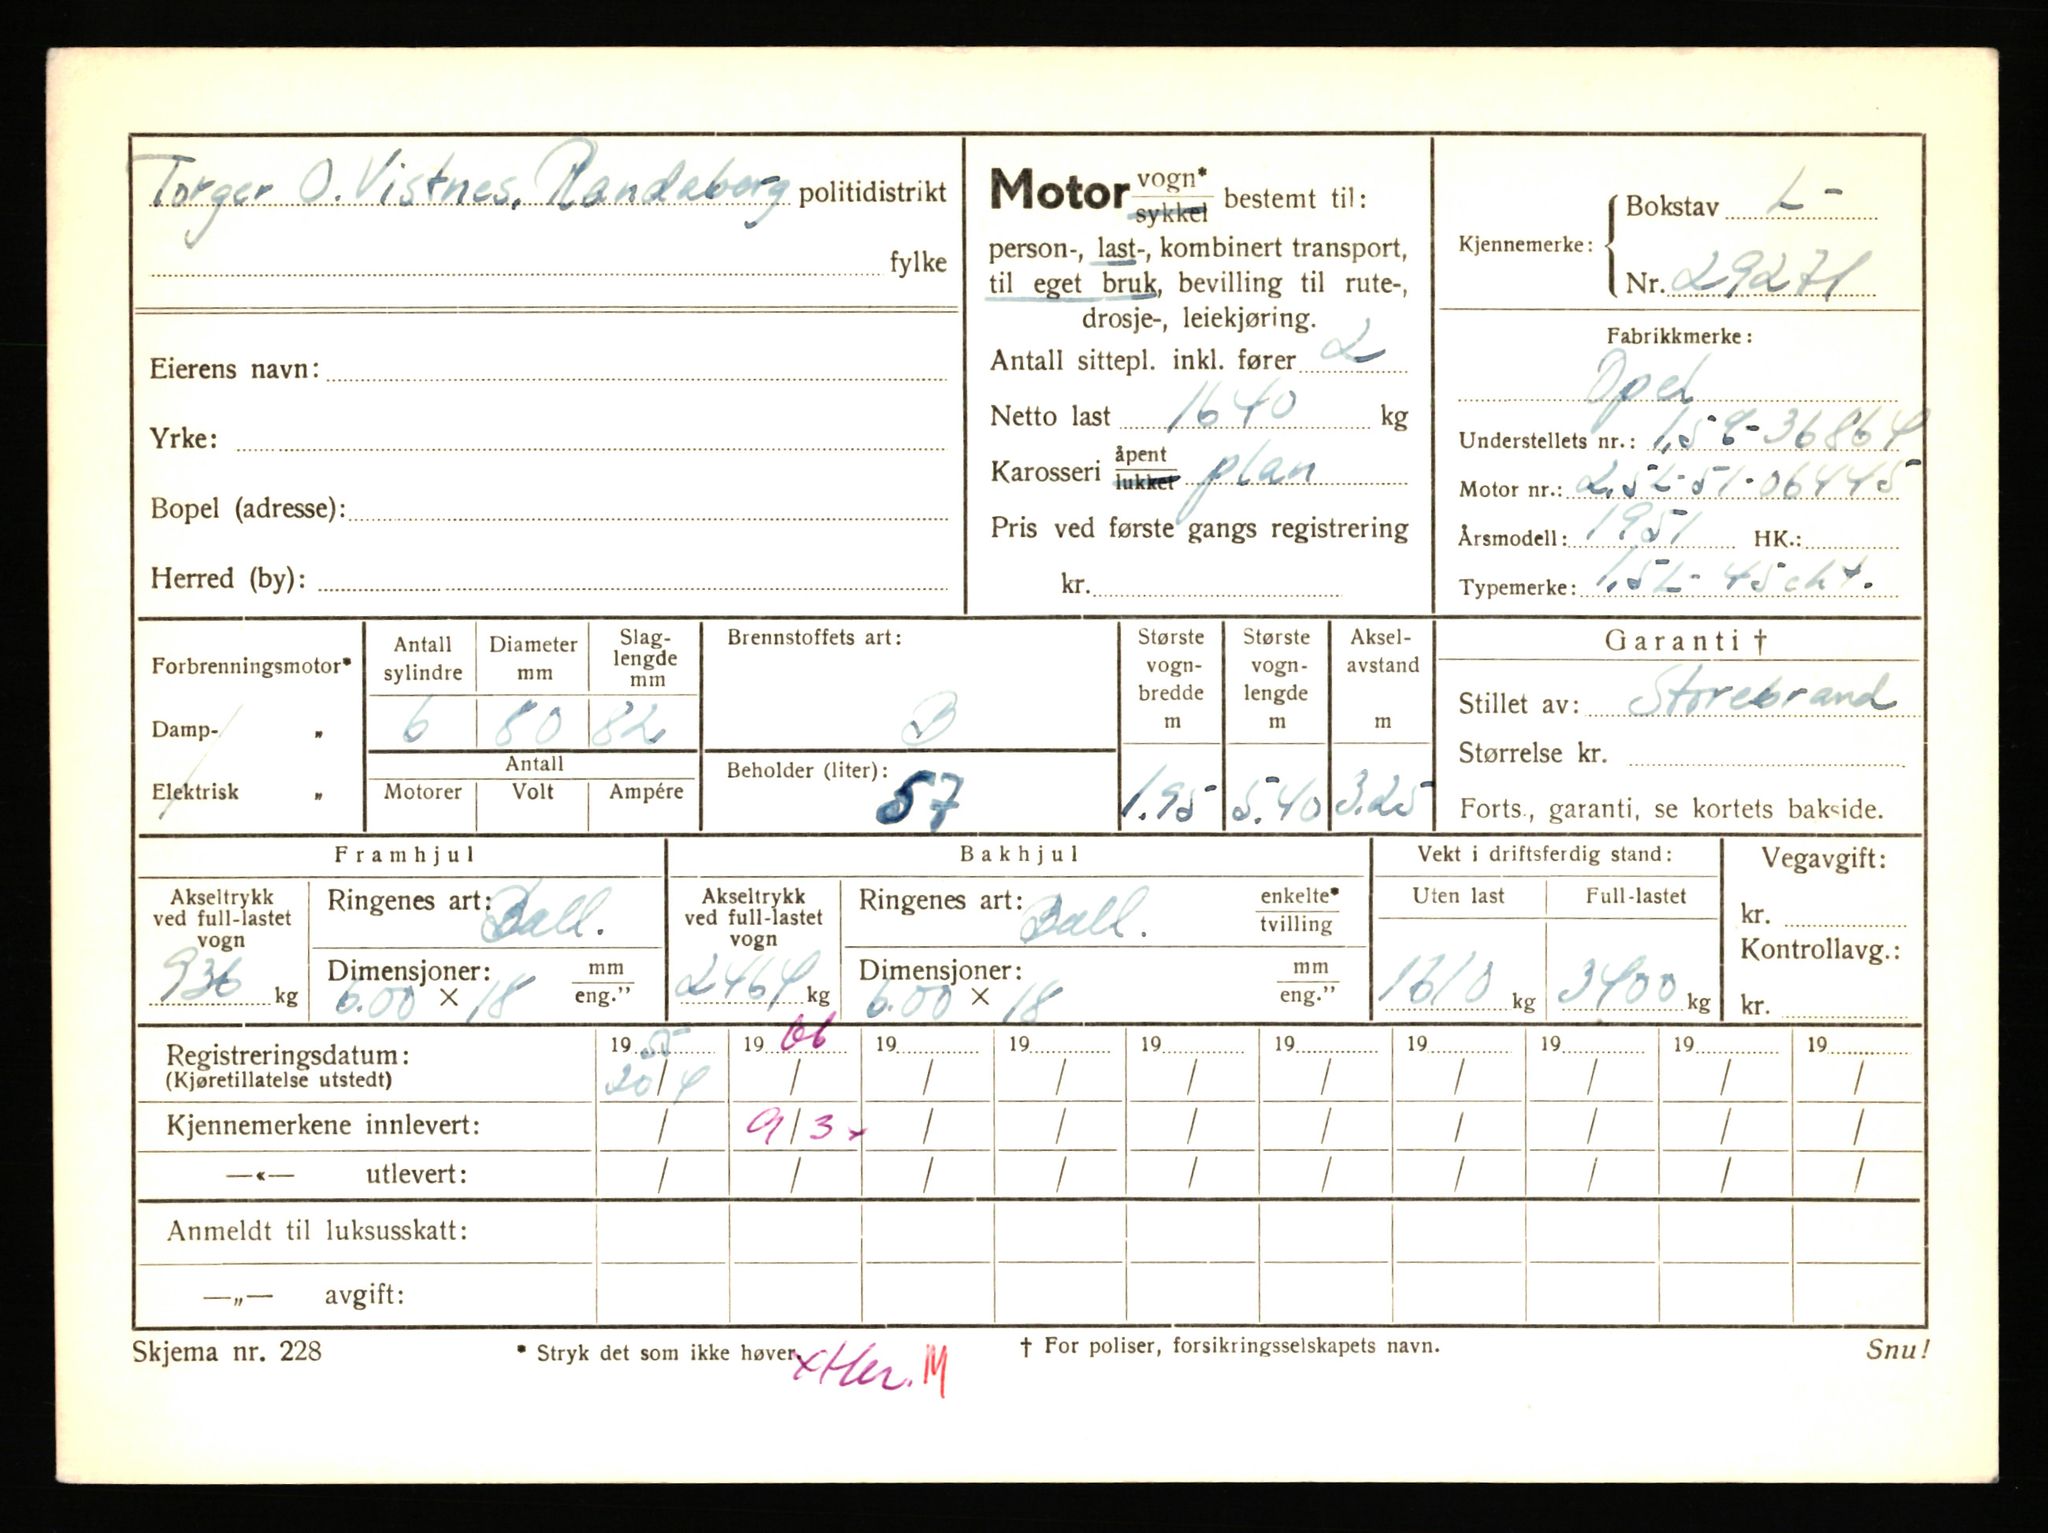 Torger O. Vistnes, Randaberg politidistrikt
fylke
Eierens navn:
Yrke:
Bopel (adresse):
Herred (by):
Motor vogn* sykkel bestemt til:
person-, last-, kombinert transport,
til eget bruk, bevilling til rute-,
drosje-, leiekjøring.
Antall sittepl. inkl. fører 2
Netto last 1640 kg
Karosseri åpent lukket plan
Pris ved første gangs registrering
kr.
Kjennemerke: Bokstav L-
Nr. 29271
Fabrikkmerke:
Opel
Understellets nr.: 36864
Motor nr.: 2,5L-51-06445
Årsmodell: 1951 HK.:
Typemerke: 1,5L-
Forbrenningsmotor*
Damp- „
Elektrisk „
Antall sylindre
Diameter mm
Slag-lengde mm
6 80 82
Antall
Motorer Volt Ampére
Brennstoffets art:
B
Beholder (liter):
57
Største vogn-bredde m
1.95
Største vogn-lengde m
5.40
Aksel-avstand m
3.25
Garanti †
Stillet av: Storebrand
Størrelse kr.
Forts., garanti, se kortets bakside.
Framhjul
Akseltrykk ved full-lastet vogn
936 kg
Ringenes art: Ball.
Dimensjoner: mm eng.”
6.00 × 18
Bakhjul
Akseltrykk ved full-lastet vogn
2464 kg
Ringenes art: Ball. enkelte* tvilling
Dimensjoner: mm eng.”
6.00 × 18
Vekt i driftsferdig stand:
Uten last Full-lastet
1610 kg 3400 kg
Vegavgift:
kr.
Kontrollavg.:
kr.
Registreringsdatum: 19 55 19 66 19 19 19 19 19 19 19 19
(Kjøretillatelse utstedt) 20/4 / / / / / / / / /
Kjennemerkene innlevert: / 9/3 x / / / / / / / /
—«— utlevert: / / / / / / / / / /
Anmeldt til luksusskatt:
—„— avgift:
Skjema nr. 228 * Stryk det som ikke høver. † For poliser, forsikringsselskapets navn. Snu!
M